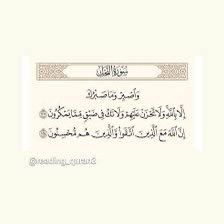 سُورَةُ النَّحْلِ
وَاصْبِرْ وَمَا صَبْرُكَ
إِلَّا بِاللَّهِ وَلَا تَحْزَنْ عَلَيْهِمْ وَلَا تَكُ فِي ضَيْقٍ مِمَّا يَمْكُرُونَ
إِنَّ اللَّهَ مَعَ الَّذِينَ اتَّقَوْا وَالَّذِينَ هُمْ مُحْسِنُونَ